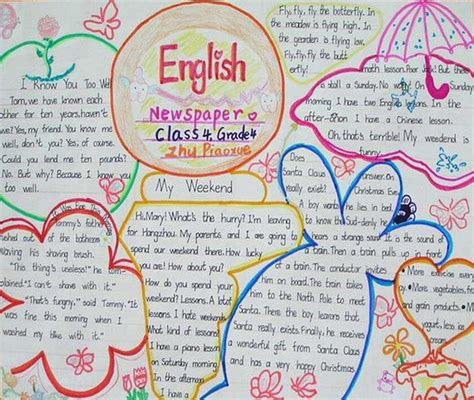 English
Newspaper
Class 4 Grade 4
Zhu Piaoxue
I Know You Too Well
Tom, we have known each
other for ten years, haven't
we? Yes, my friend. You know me
well, don't you? Yes, of course.
Could you lend me ten pounds?
No. But why? Because I know you
too well.
Fly, fly, fly the butterfly. In
the meadow is flying high. In
the gearden is flying low.
Fly, fly, fly the butt
erfly!
math lesson. Poor Jack! But the
is stall a Sunday. No way! On Sunday
morning I have two Eng
In the
after-noon I have a Chinese lesson.
Oh, that's terrible! My weedend is
funny.
My Weekend
Hi, Mary! What's the hurry? I'm leaving
for Hangzhou. My parents and I am going to
spend our weekend there. How lucky
you are! How about you?
How do you spend your
weekend? Lessons. A lot
lessons. I hate weekends.
What kind of lessons
I have a piano lesson
on Saturday morning
In the afternoon
I have a
Tommy's father
ashed out of the bathroom
Waving his shaving brush.
"This thing's useless!" he com-
plained. "I can't shave with it."
"That's fungny," said Tommy. "It was
fine this morning when I
washed my bike with it."
Does
Santa Claus
really exist?
A boy wants
to know the
answer. On
Christmas Eve
he lies in bed
Sud-denly he
hears a strange sound. It is the sound of
a train. Then a train pulls up in front
of a train. The conductor invites
him on board. The train takes
him to the North Pole to meet
Santa. There the boy learens that
Santa really exists. Finally, he receives
a wonderful gift from Santa Claus
and has a very happy Christmas.
More exercise
More vegetables,
and grain products
yogurt, less ice
cream